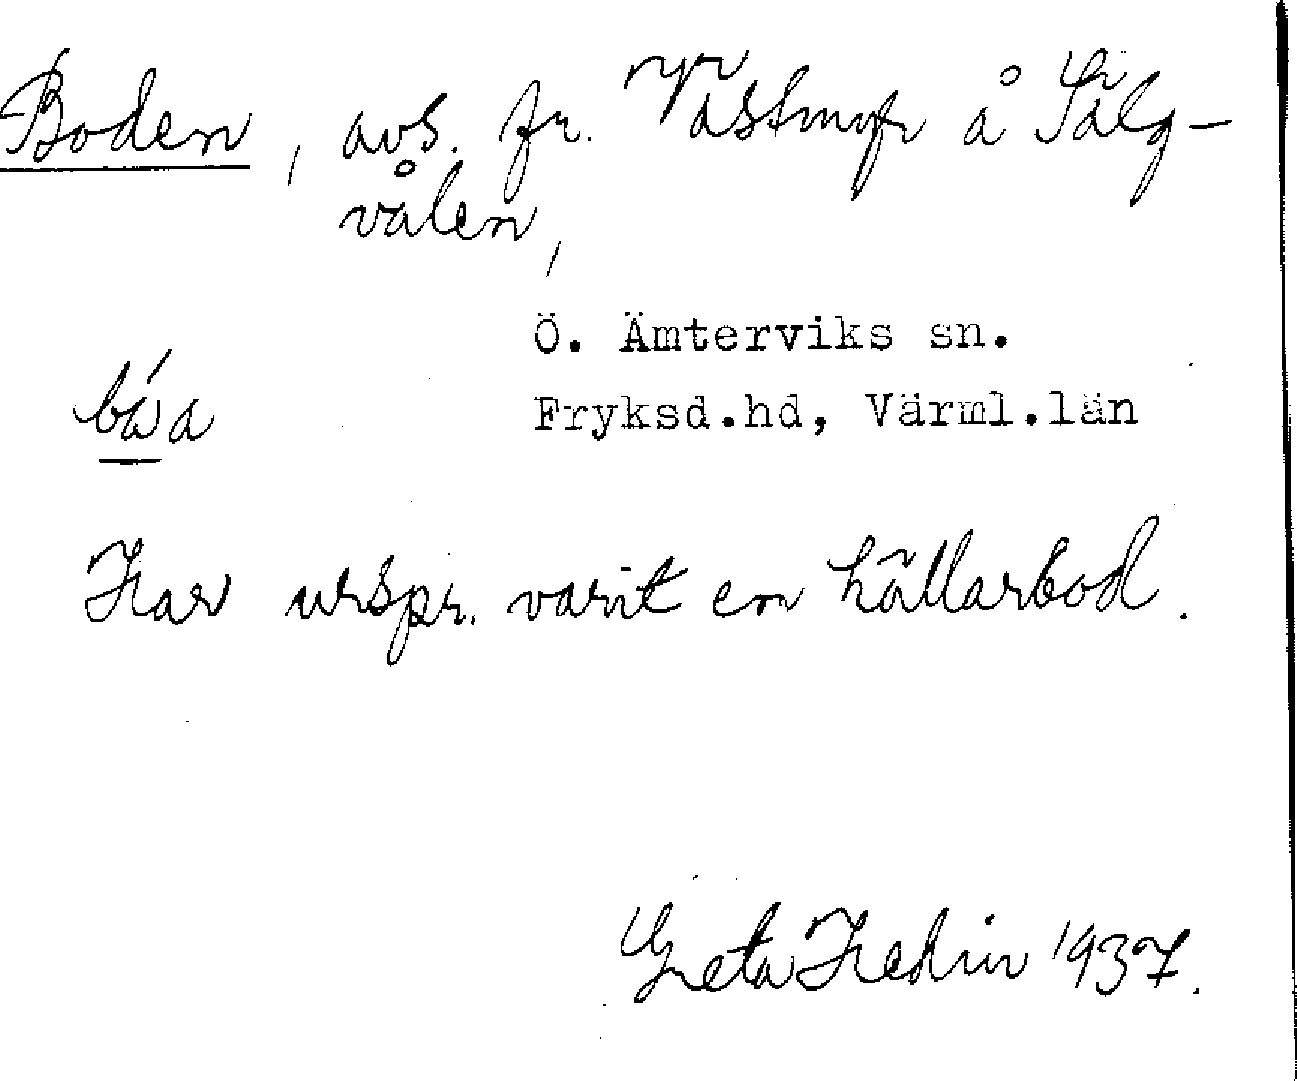 Boden, avs. fr. Västmyr å Sälg-
vålen,
Ö. Ämterviks sn.
Fryksd.hd, Värml.län
Har urspr. varit en hållarbod.
Greta Hedin 1937.